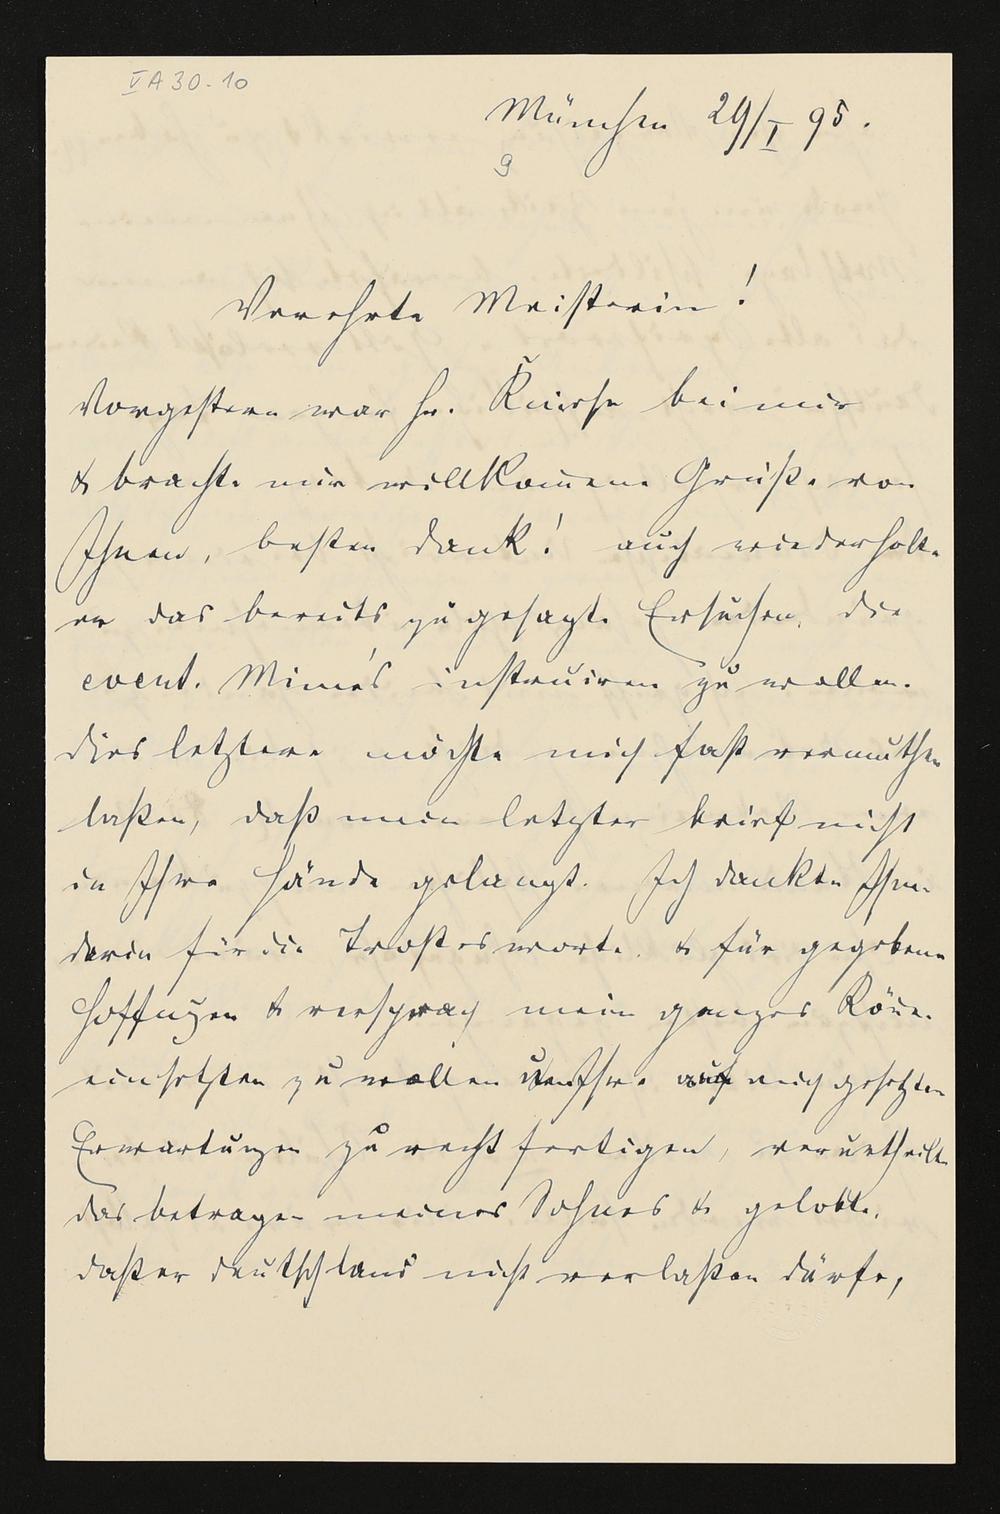 V A 30-10
München 29/I 95.
9
Verehrte Meisterin!
Vorgestern war Hr. Kniese bei mir
& brachte mir willkom̄ene Grüße von
Ihnen, besten Dank! auch wiederholte
er das bereits zugesagte Ersuchen, die
event. Mime's instruiren zu wollen.
Dies letztere möchte mich fast vermuthen
laßen, daß mein letzter Brief nicht
in Ihre Hände gelangt. Ich dankte Ihnen
darin für die Trostesworte & für gegebene
Hoffnungen & versprach mein ganzes
einsetzten zu wollen um Ihre auf mich gesetzten
Erwartungen zu rechtfertigen, verurtheilte
das betragen meines Sohnes & gelobte,
daß er Deutschland nicht verlaßen dürfe,